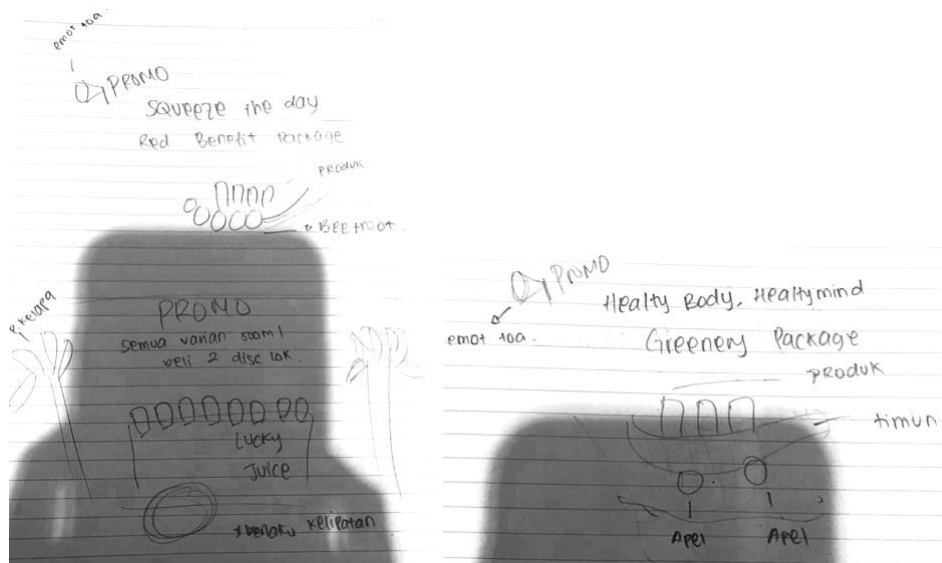 emot toa
PROMO
SQUEEZE the day
Red Benefit Package
PRODUK
BEETROOT
P. Kelapa
PROMO
semua varian 500ml
beli 2 disc 10k.
LUCKY
JUICE
*berlaku kelipatan
PROMO
emot toa.
Healty Body, Healtymind
Greenery Package
PRODUK
timun.
Apel
Apel